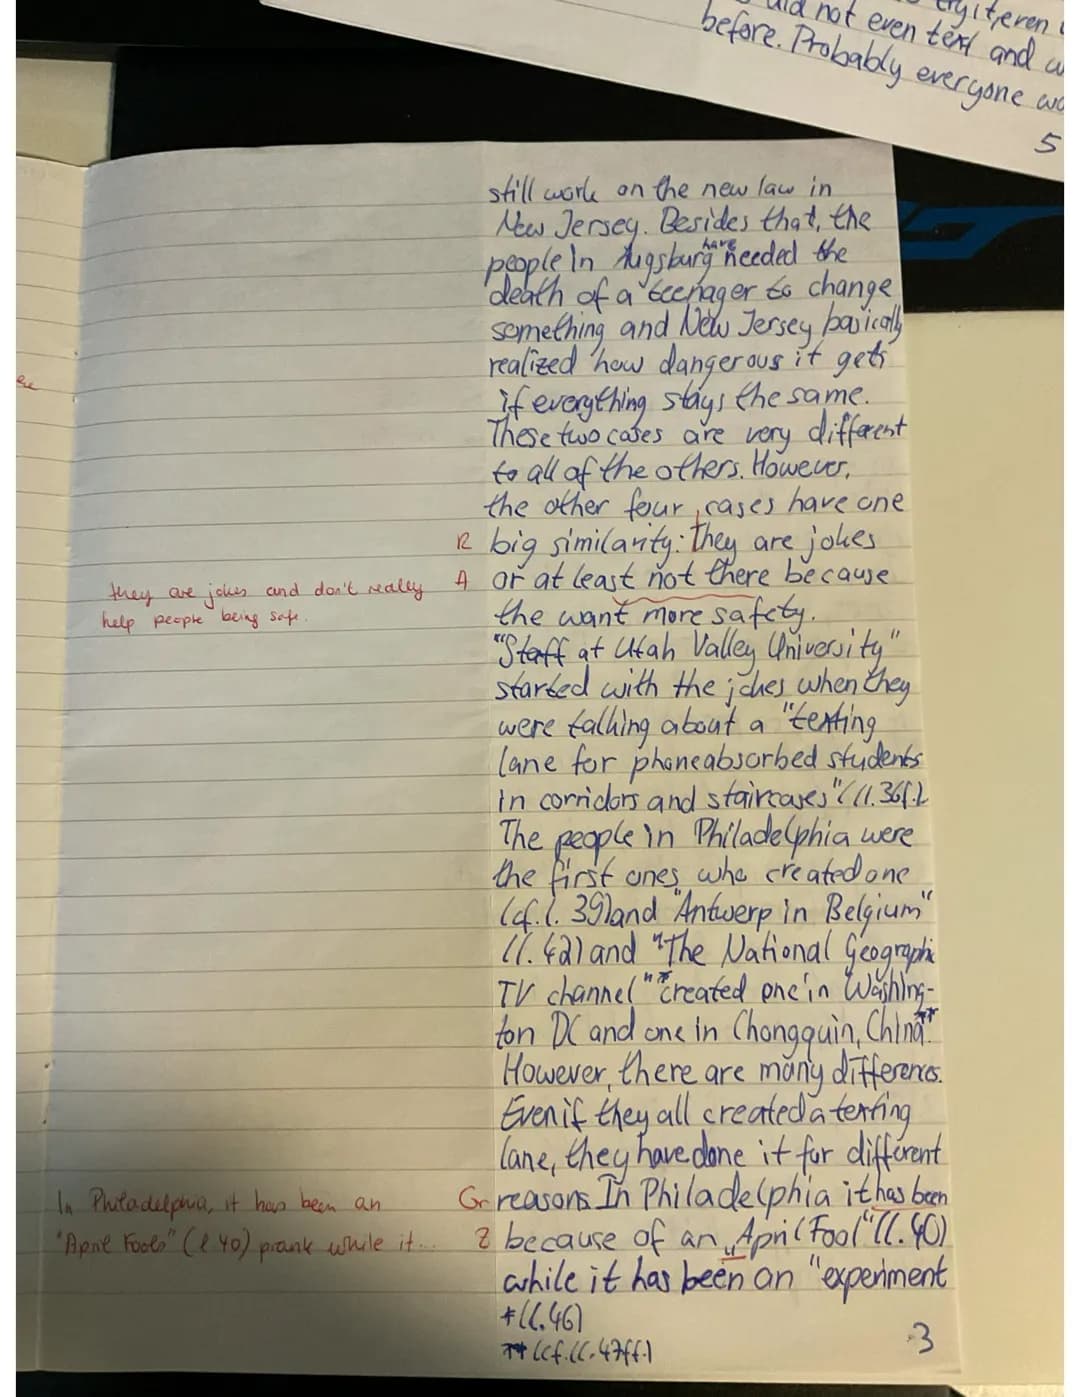 try it, even
did not even text and
before. Probably everyone
5
still work on the new law in
New Jersey. Besides that, the
people in Augsburg have needed the
death of a teenager to change
something and New Jersey basically
realized how dangerous it gets
if everything stays the same.
These two cases are very different
to all of the others. However,
the other four cases have one
R big similarity: They are jokes
they are jokes and don't really A or at least not there because
help people being safe. the want more safety.
"Staff at Utah Valley University"
started with the jokes when they
were talking about a "texting
lane for phoneabsorbed students
in corridors and staircases" (ll. 36f.).
The people in Philadelphia were
the first ones who created one
(cf. l. 39) and "Antwerp in Belgium"
(l. 42) and "The National Geographic
TV channel"* created one in Washing-
ton DC and one in Chongquin, China**.
However, there are many differences.
Even if they all created a texting
lane, they have done it for different
In Philadelphia, it has been an Gr reasons. In Philadelphia it has been
"April Fools" (l 40) prank while it... Z because of an „April Fool" (l. 40)
while it has been an "experiment
*(l. 46)
** (cf. ll. 47ff.)
3